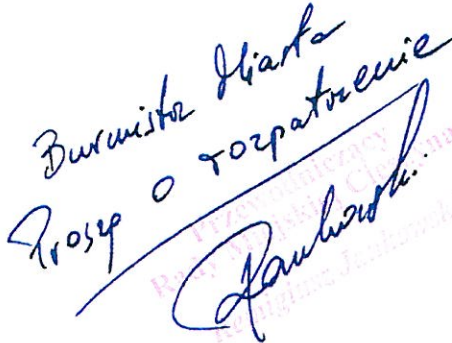 Burmistrz Miasta
Proszę o rozpatrzenie
Przewodniczący
Rady Miejskiej
Remigiusz Jankowski